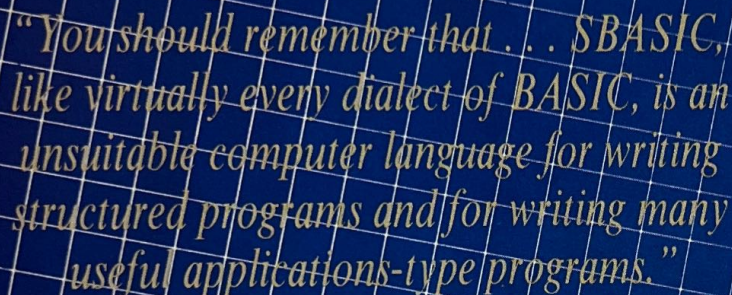 “You should remember that . . . SBASIC,
like virtually every dialect of BASIC, is an
unsuitable computer language for writing
structured programs and for writing many
useful applications-type programs.”